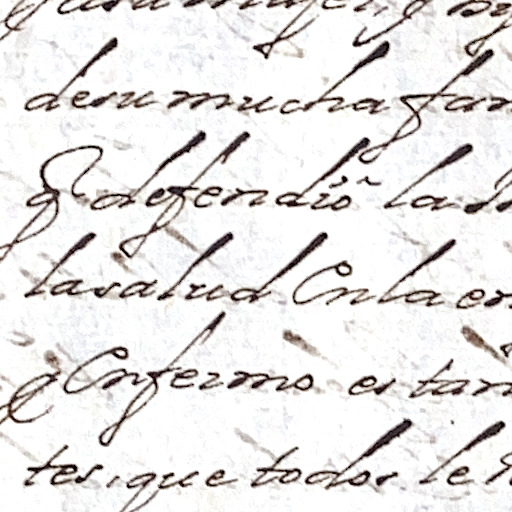 de su mucha fam
q defendió la
la salud En la en
q Enfermo estan
tes, que todos le